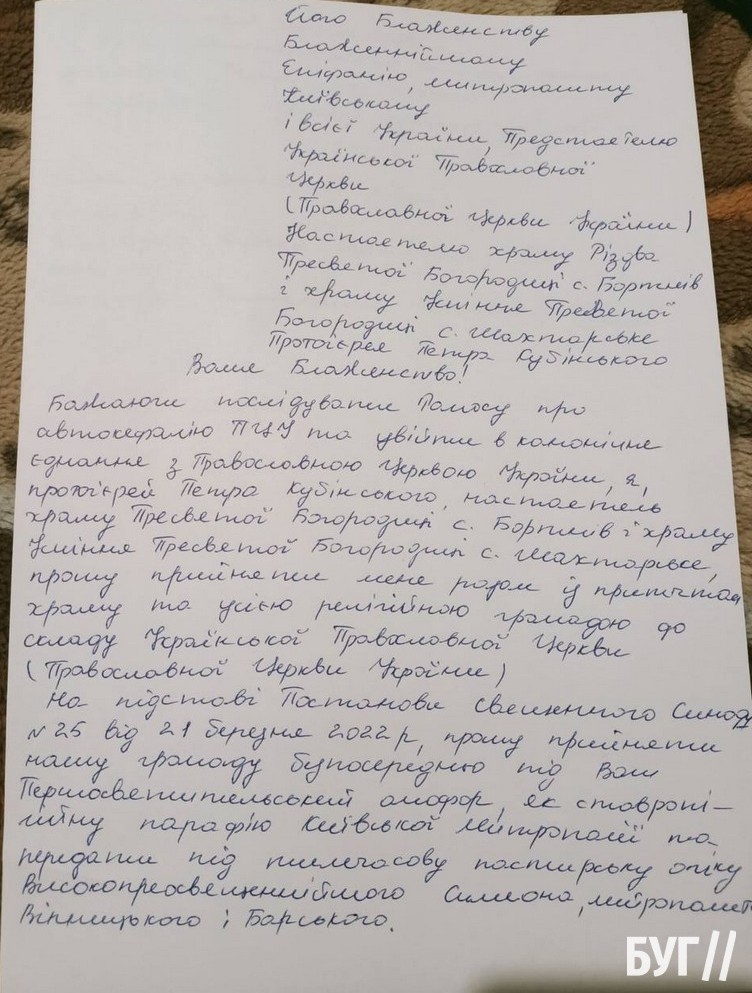 Його Блаженству
Блаженнійшому
Епіфанію, митрополиту
Київському
і всієї України, Предстоятелю
Української Православної
Церкви
(Православної Церкви України)
Настоятелю храму Різдва
Пресвятої Богородиці с. Бортків
і храму Успіння Пресвятої
Богородиці с. Шахтарське
Протоієрея Петра Кубінського
Ваше Блаженство!
Бажаючи послідувати Томосу про
автокефалію ПЦУ та увійти в канонічне
єднання з Православною Церквою України, я,
протоієрей Петра Кубінського, настоятель
храму Пресвятої Богородиці с. Бортків і храму
Успіння Пресвятої Богородиці с. Шахтарське,
прошу прийняти мене разом із притчтом
храму та усією релігійною громадою до
складу Української Православної Церкви
(Православної Церкви України)
На підставі Постанови священного Синоду
№25 від 21 березня 2022 р, прошу прийняти
нашу громаду безпосередньо під Ваш
Першосвятительський омофор, як ставропі-
гійну парафію Київської Митрополії та
передати під тимчасову пастирську опіку
Високопреосвященнійшого Симеона, митрополит
Вінницького і Барського.
БУГ//